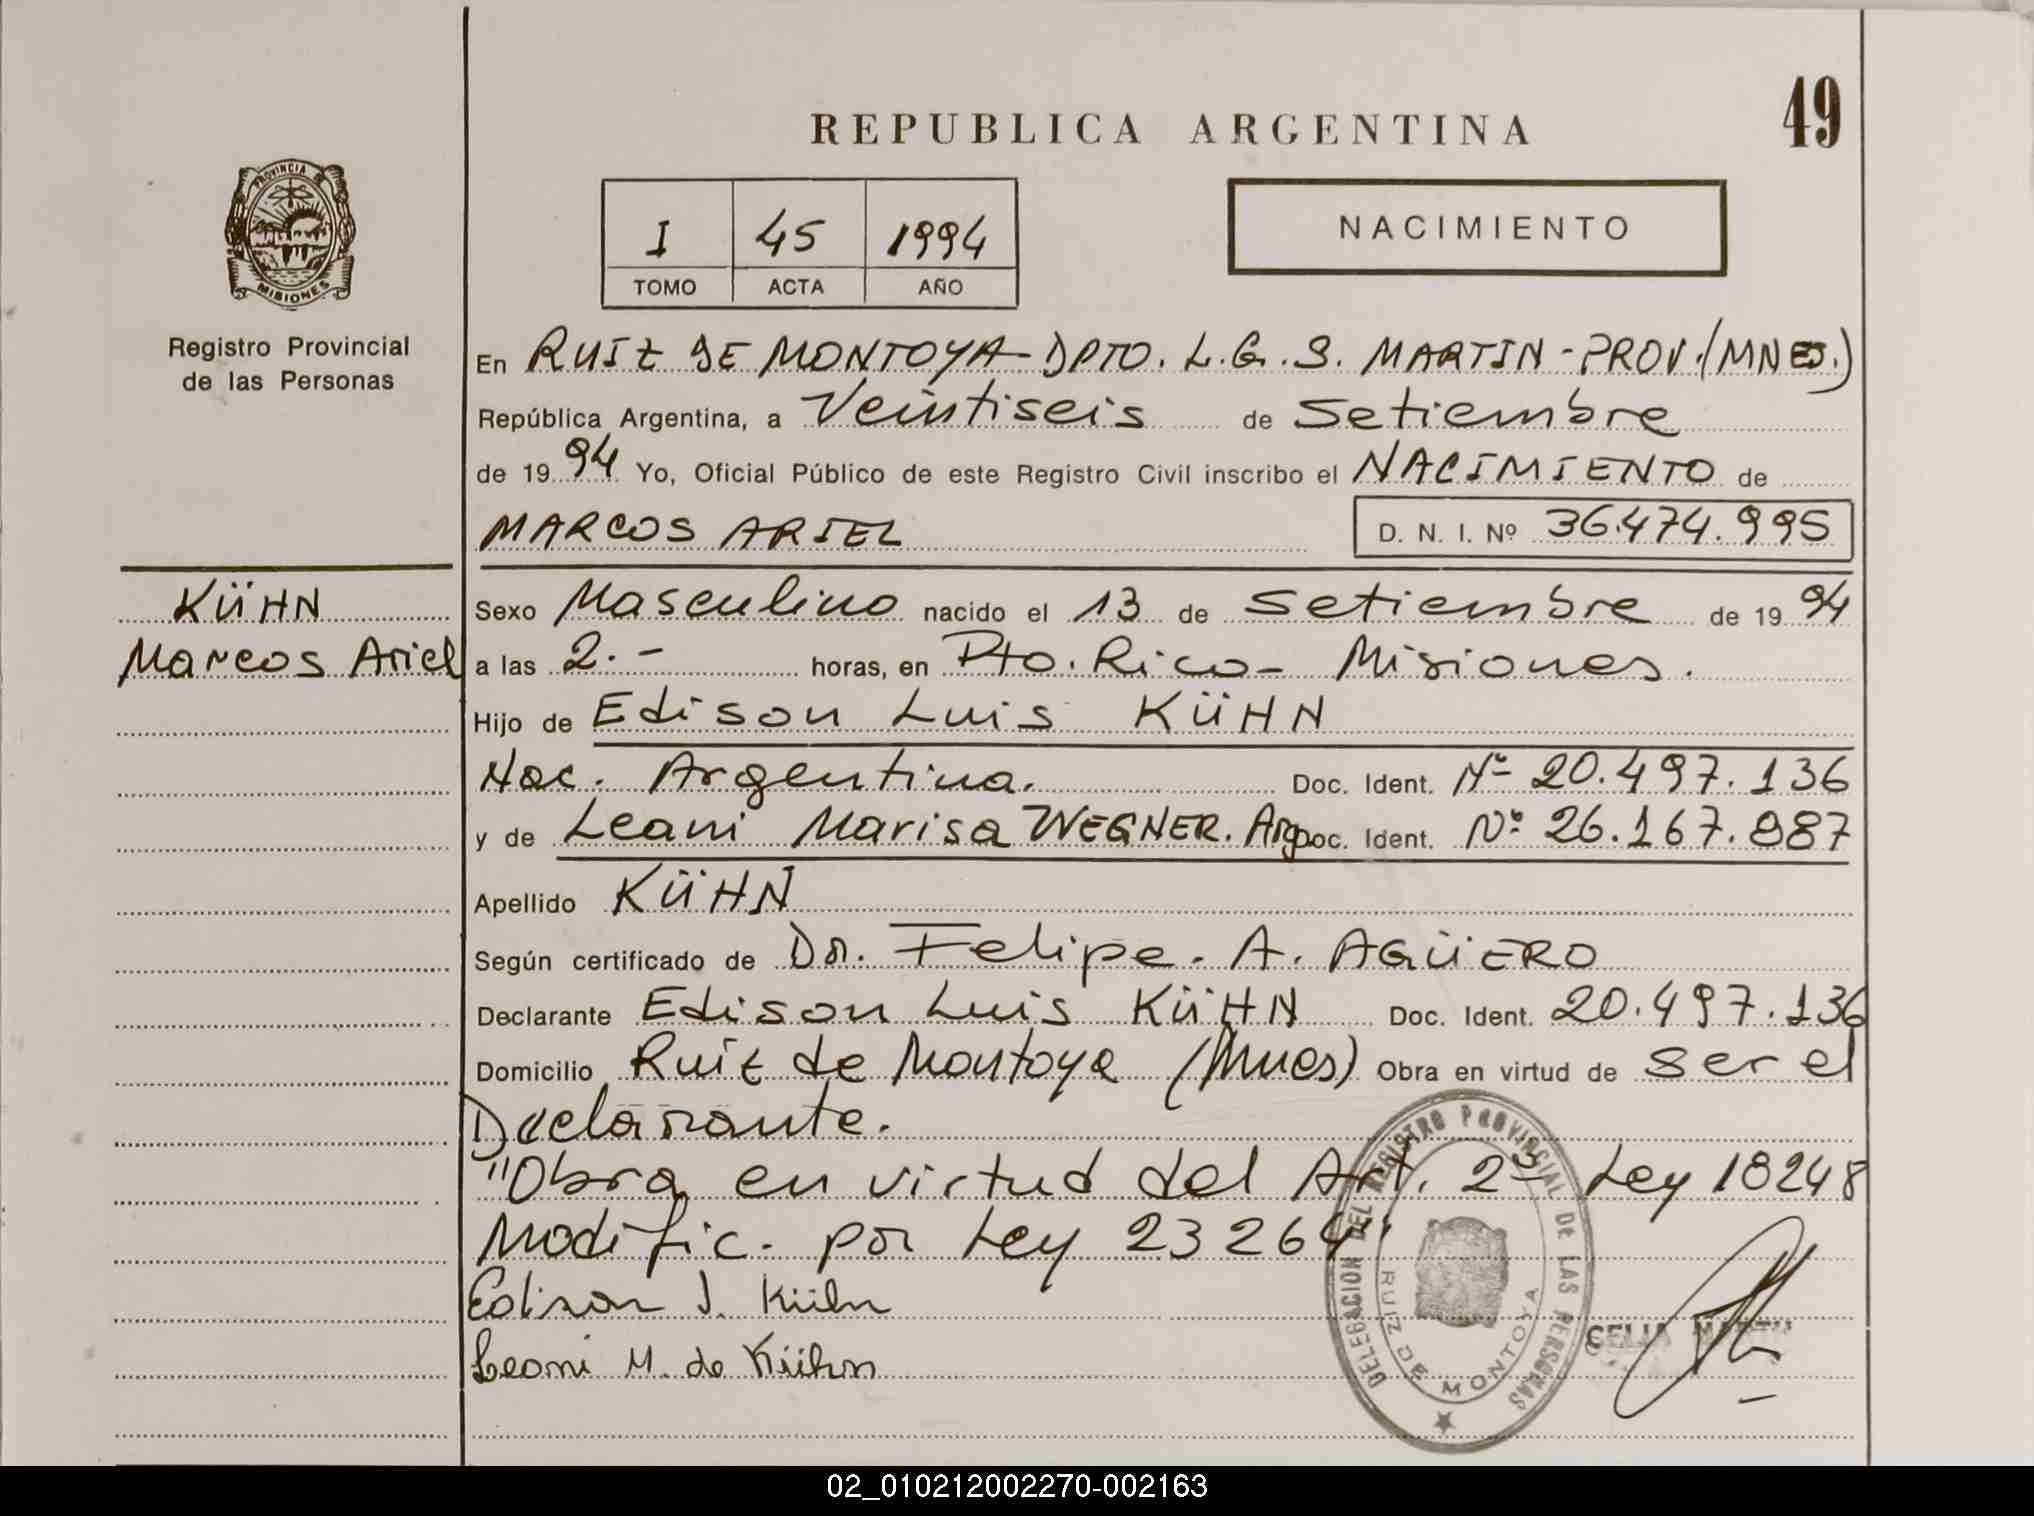 REPUBLICA ARGENTINA
49
PROVINCIA DE
MISIONES
Registro Provincial
de las Personas
I 45 1994
TOMO ACTA AÑO
NACIMIENTO
En RUIZ DE MONTOYA-DPTO. L.G.S. MARTIN-PROV.(MNES.)
República Argentina, a Veintiseis de Setiembre
de 1994 Yo, Oficial Público de este Registro Civil inscribo el NACIMIENTO de
MARCOS ARIEL
D. N. I. Nº 36.474.995
KÜHN
Marcos Ariel
Sexo Masculino nacido el 13 de Setiembre de 1994
a las 2.- horas, en Pto. Rico- Misiones.
Hijo de Edison Luis KÜHN
Nac. Argentina. Doc. Ident. Nº 20.497.136
y de Leani Marisa WEGNER. Arg. Doc. Ident. Nº 26.167.887
Apellido KÜHN
Según certificado de Dr. Felipe. A. AGÜERO
Declarante Edison Luis KÜHN Doc. Ident. 20.497.136
Domicilio Ruiz de Montoya (Mnes) Obra en virtud de ser el
Declarante.
"Obra en virtud del Art. 2º Ley 18248
Modific. por Ley 23264"
Edison J. Kühn
Leani M. de Kühn
DELEGACION DEL REGISTRO PROVINCIAL DE LAS PERSONAS
RUIZ DE MONTOYA
CELIA
02_010212002270-002163